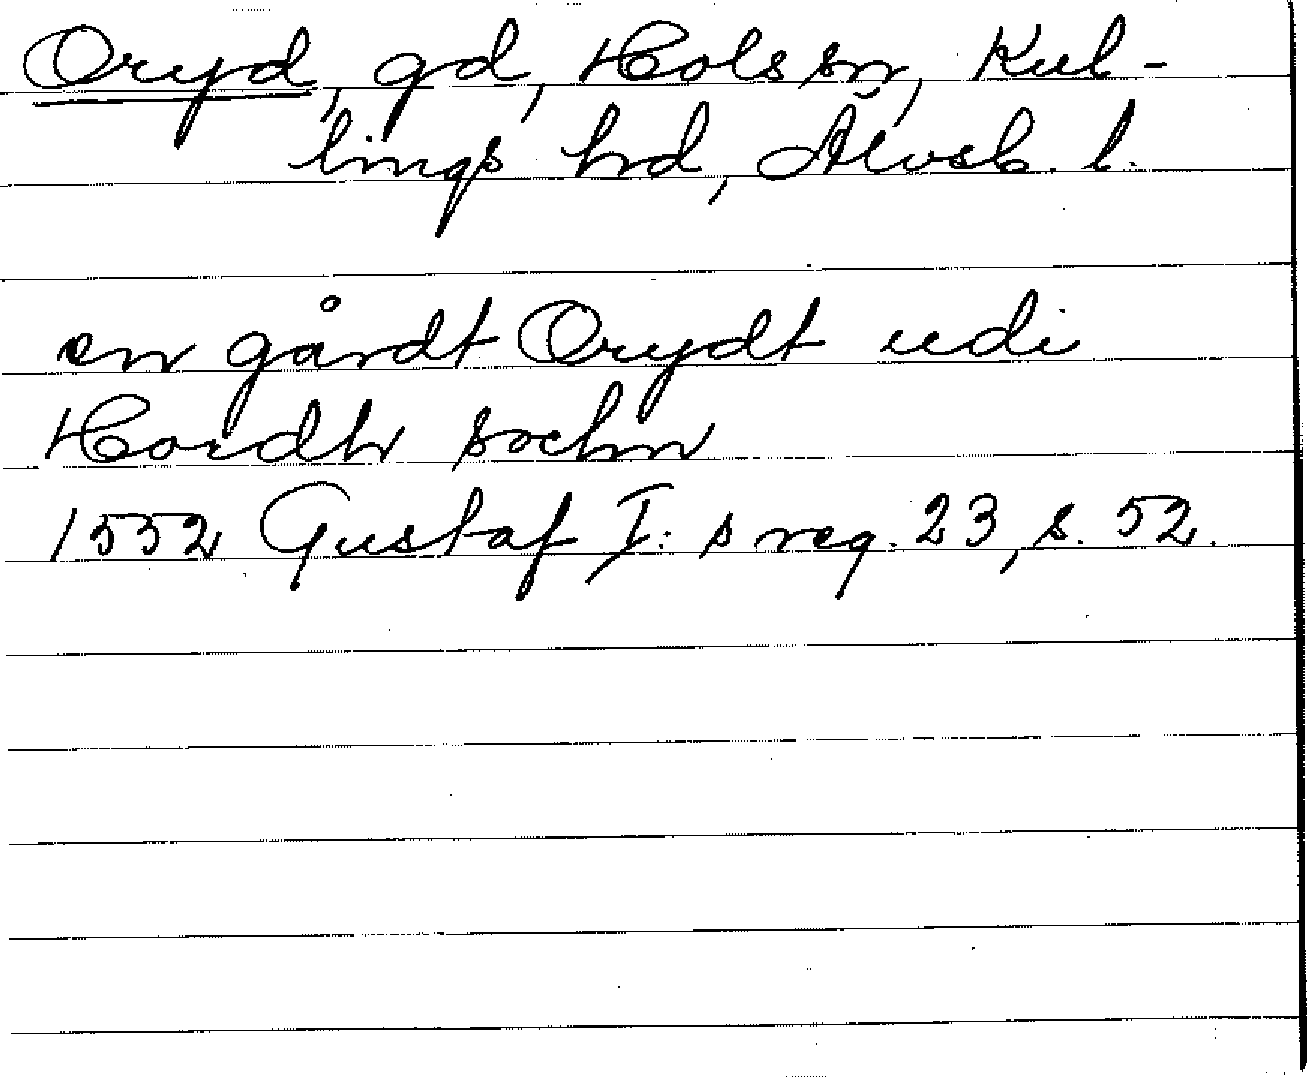 Oryd, gd, Hols sn, Kul-
lings hd, Älvsb. l.
en gårdt Orydt udi
Hordh sochn
1552 Gustaf I:s reg. 23, s. 52.